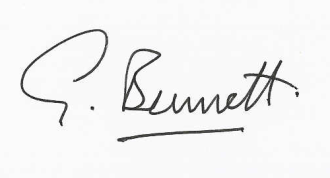 G. Bennett.